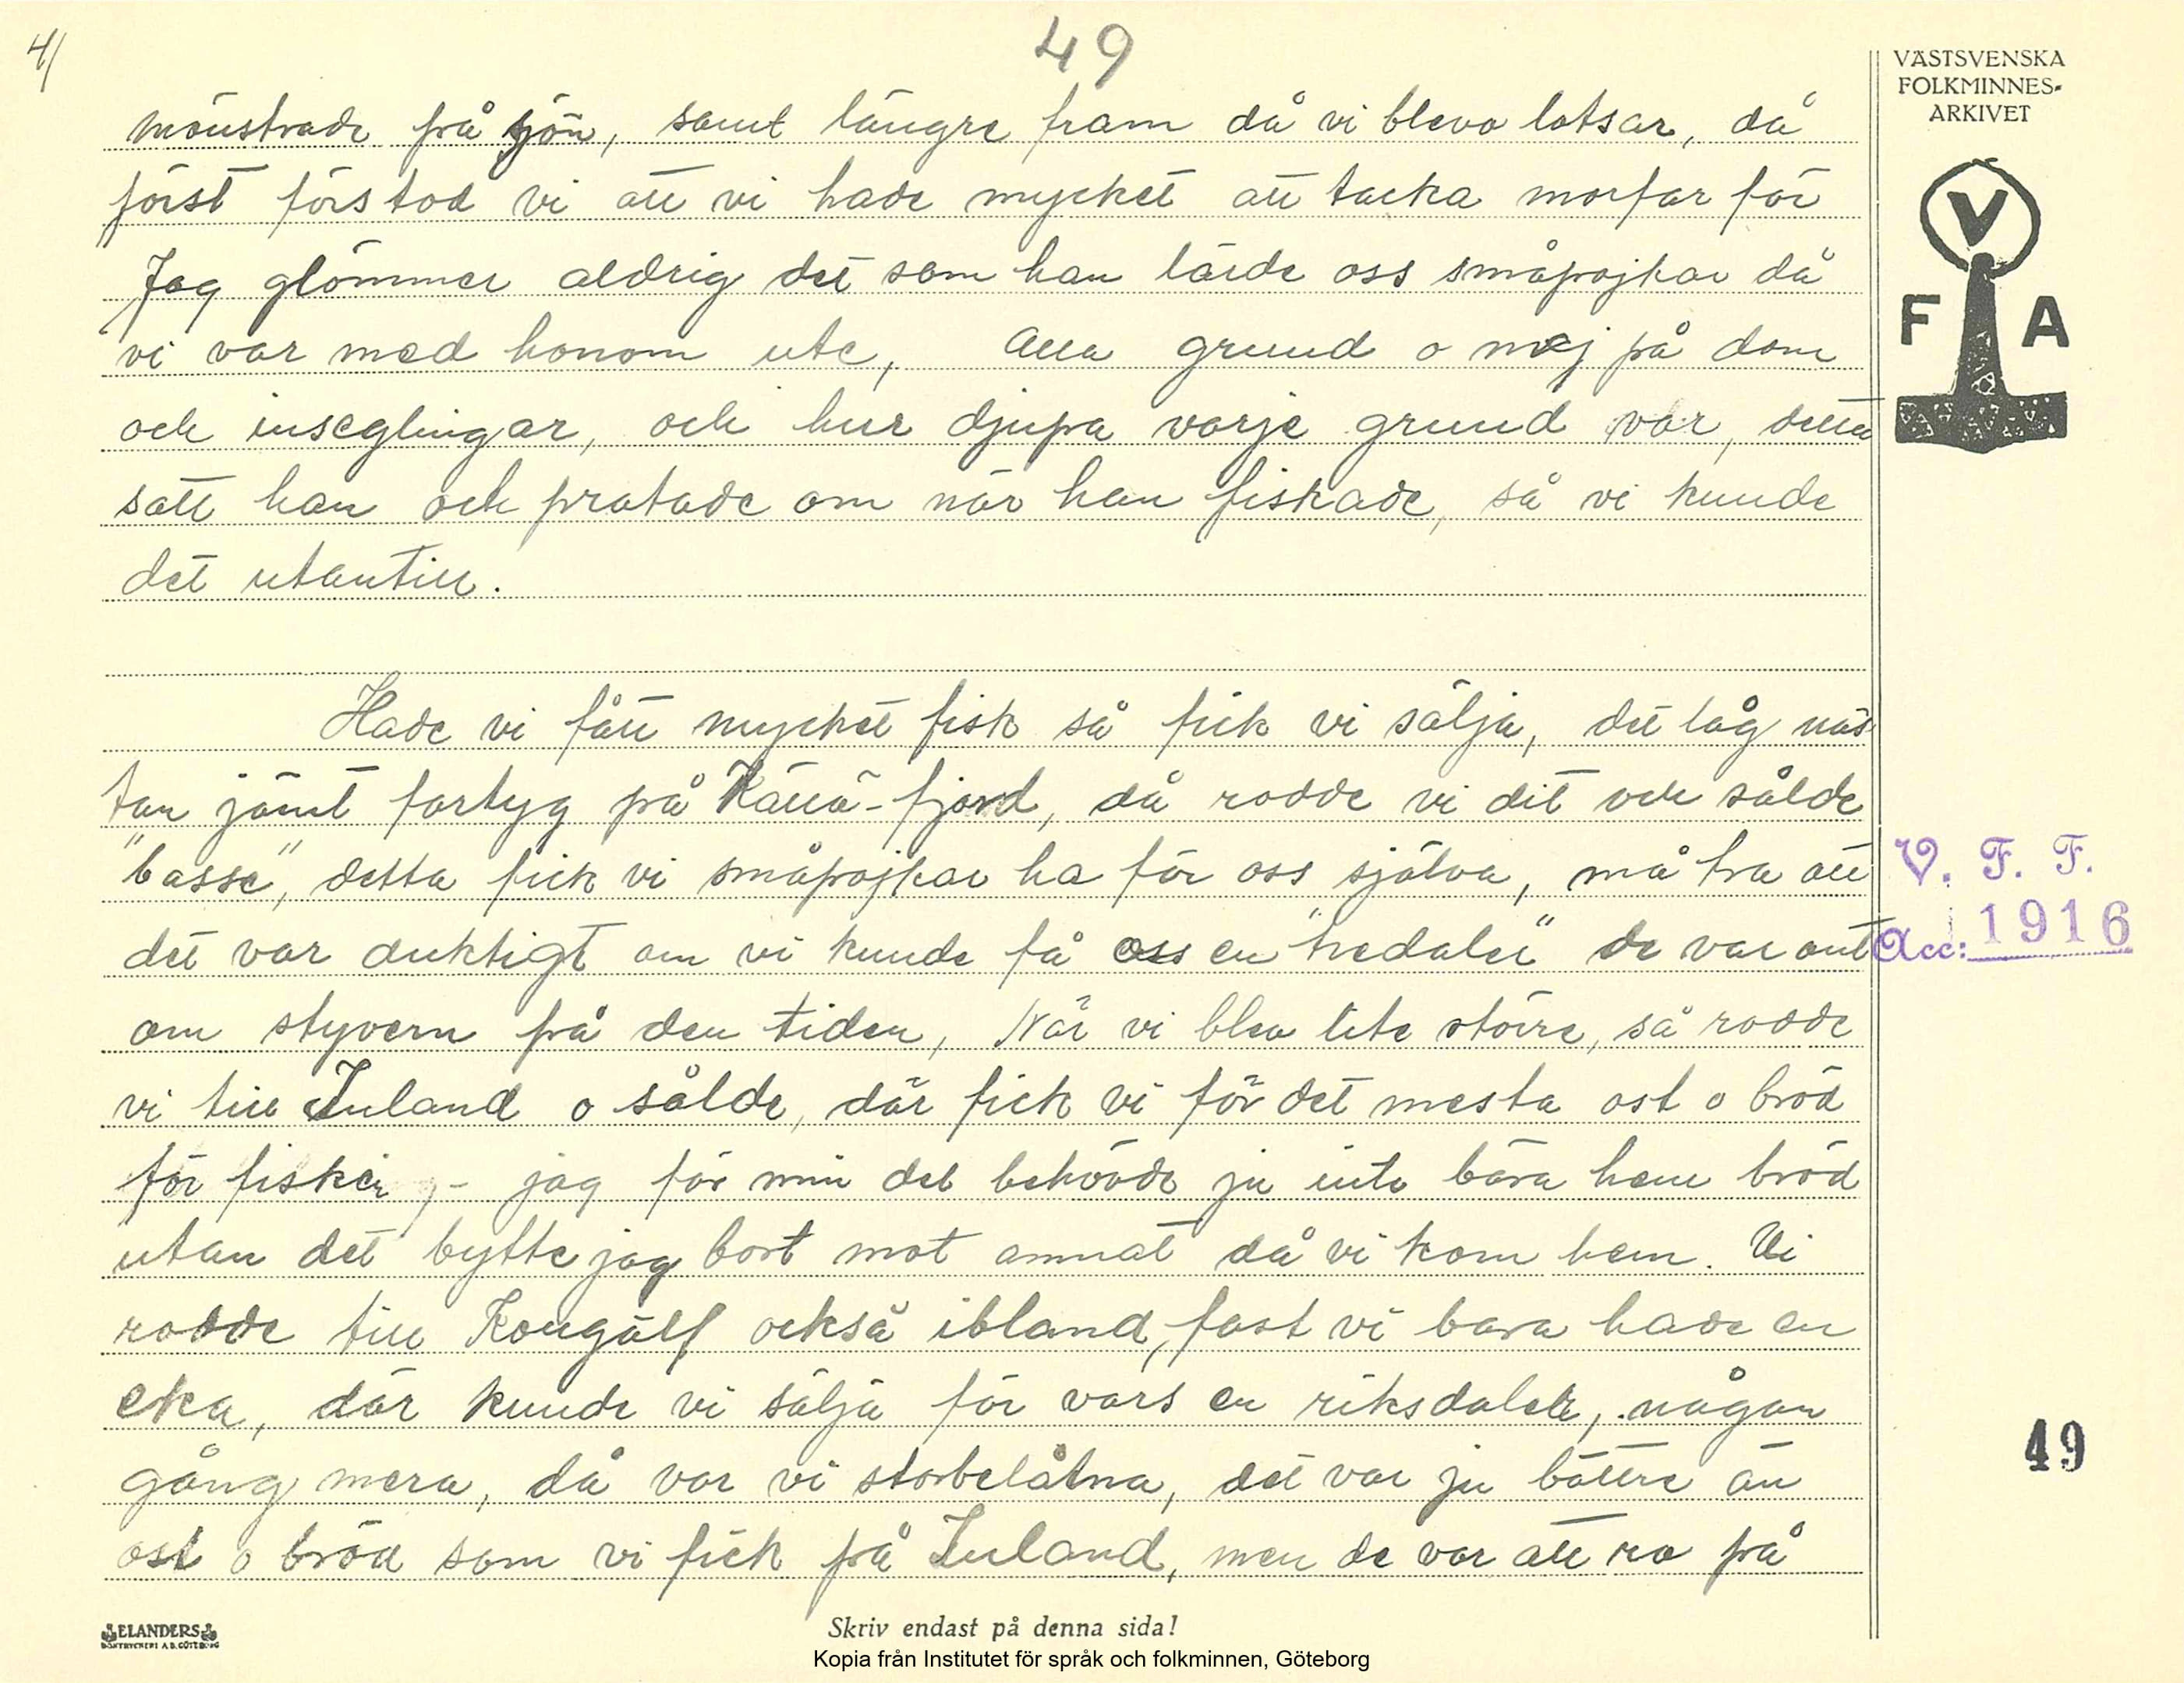 4/
49
VÄSTSVENSKA
FOLKMINNES-
ARKIVET
V
F A
mönstrade på sjön, samt längre fram då vi blevo lotsar, då
först förstod vi att vi hade mycket att tacka morfar för
Jag glömmer aldrig det som han lärde oss småpojkar då
vi var med honom ute, alla grund o mej på dom
och inseglingar, och hur djupa varje grund var, detta
satt han och pratade om när han fiskade, så vi kunde
det utantill.
Hade vi fått mycket fisk så fick vi sälja, det låg näs-
tan jämt fartyg på Källö-fjord, då rodde vi dit och sålde
"basse", detta fick vi småpojkar ha för oss själva, må tro att
det var duktigt om vi kunde få oss en "tredaler" de var ont
om styvern på den tiden, När vi blev lite större, så rodde
vi till Inland o sålde, där fick vi för det mesta ost o bröd
för fisken, - jag för min del behövde ju inte bära hem bröd
utan det bytte jag bort mot annat då vi kom hem. Vi
rodde till Kongälf också ibland, fast vi bara hade en
eka, där kunde vi sälja för vars en riksdaler, någon
gång mera, då var vi storbelåtna, det var ju bättre än
ost o bröd som vi fick på Inland, men de var att ro på
V. F. F.
Acc: 1916
49
ELANDERS
BOKTRYCKERI A.B. GÖTEBORG
Skriv endast på denna sida!
Kopia från Institutet för språk och folkminnen, Göteborg